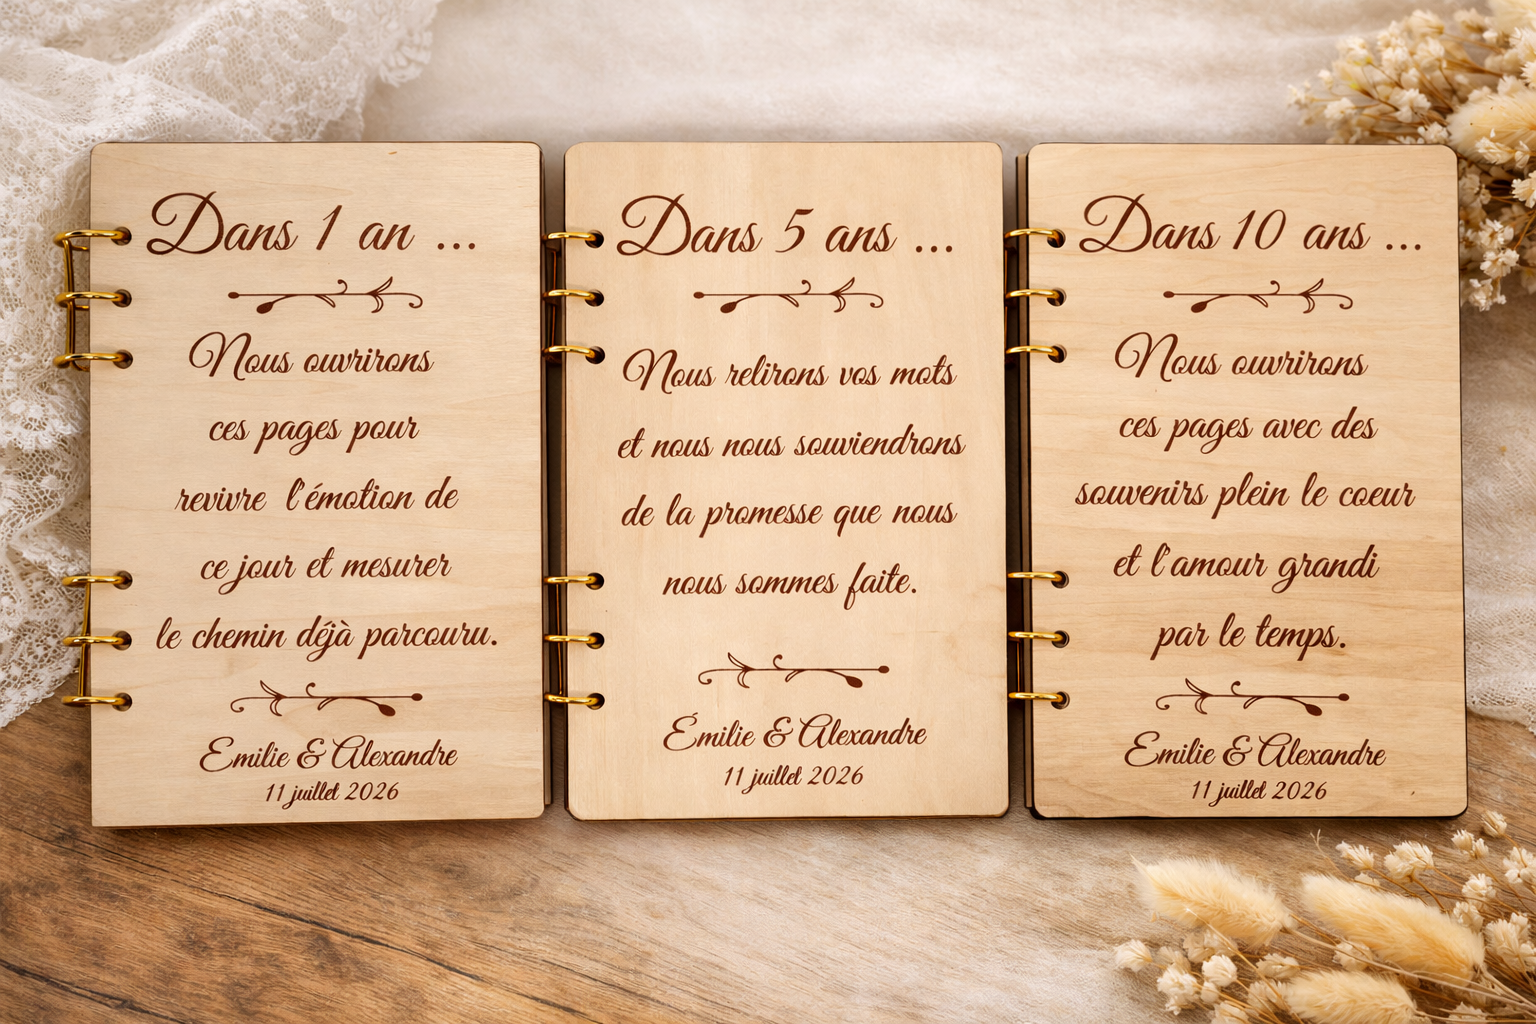 Dans 1 an ...
Nous ouvrirons
ces pages pour
revivre l'émotion de
ce jour et mesurer
le chemin déjà parcouru.
Emilie & Alexandre
11 juillet 2026
Dans 5 ans ...
Nous relirons vos mots
et nous nous souviendrons
de la promesse que nous
nous sommes faite.
Émilie & Alexandre
11 juillet 2026
Dans 10 ans ...
Nous ouvrirons
ces pages avec des
souvenirs plein le coeur
et l'amour grandi
par le temps.
Emilie & Alexandre
11 juillet 2026